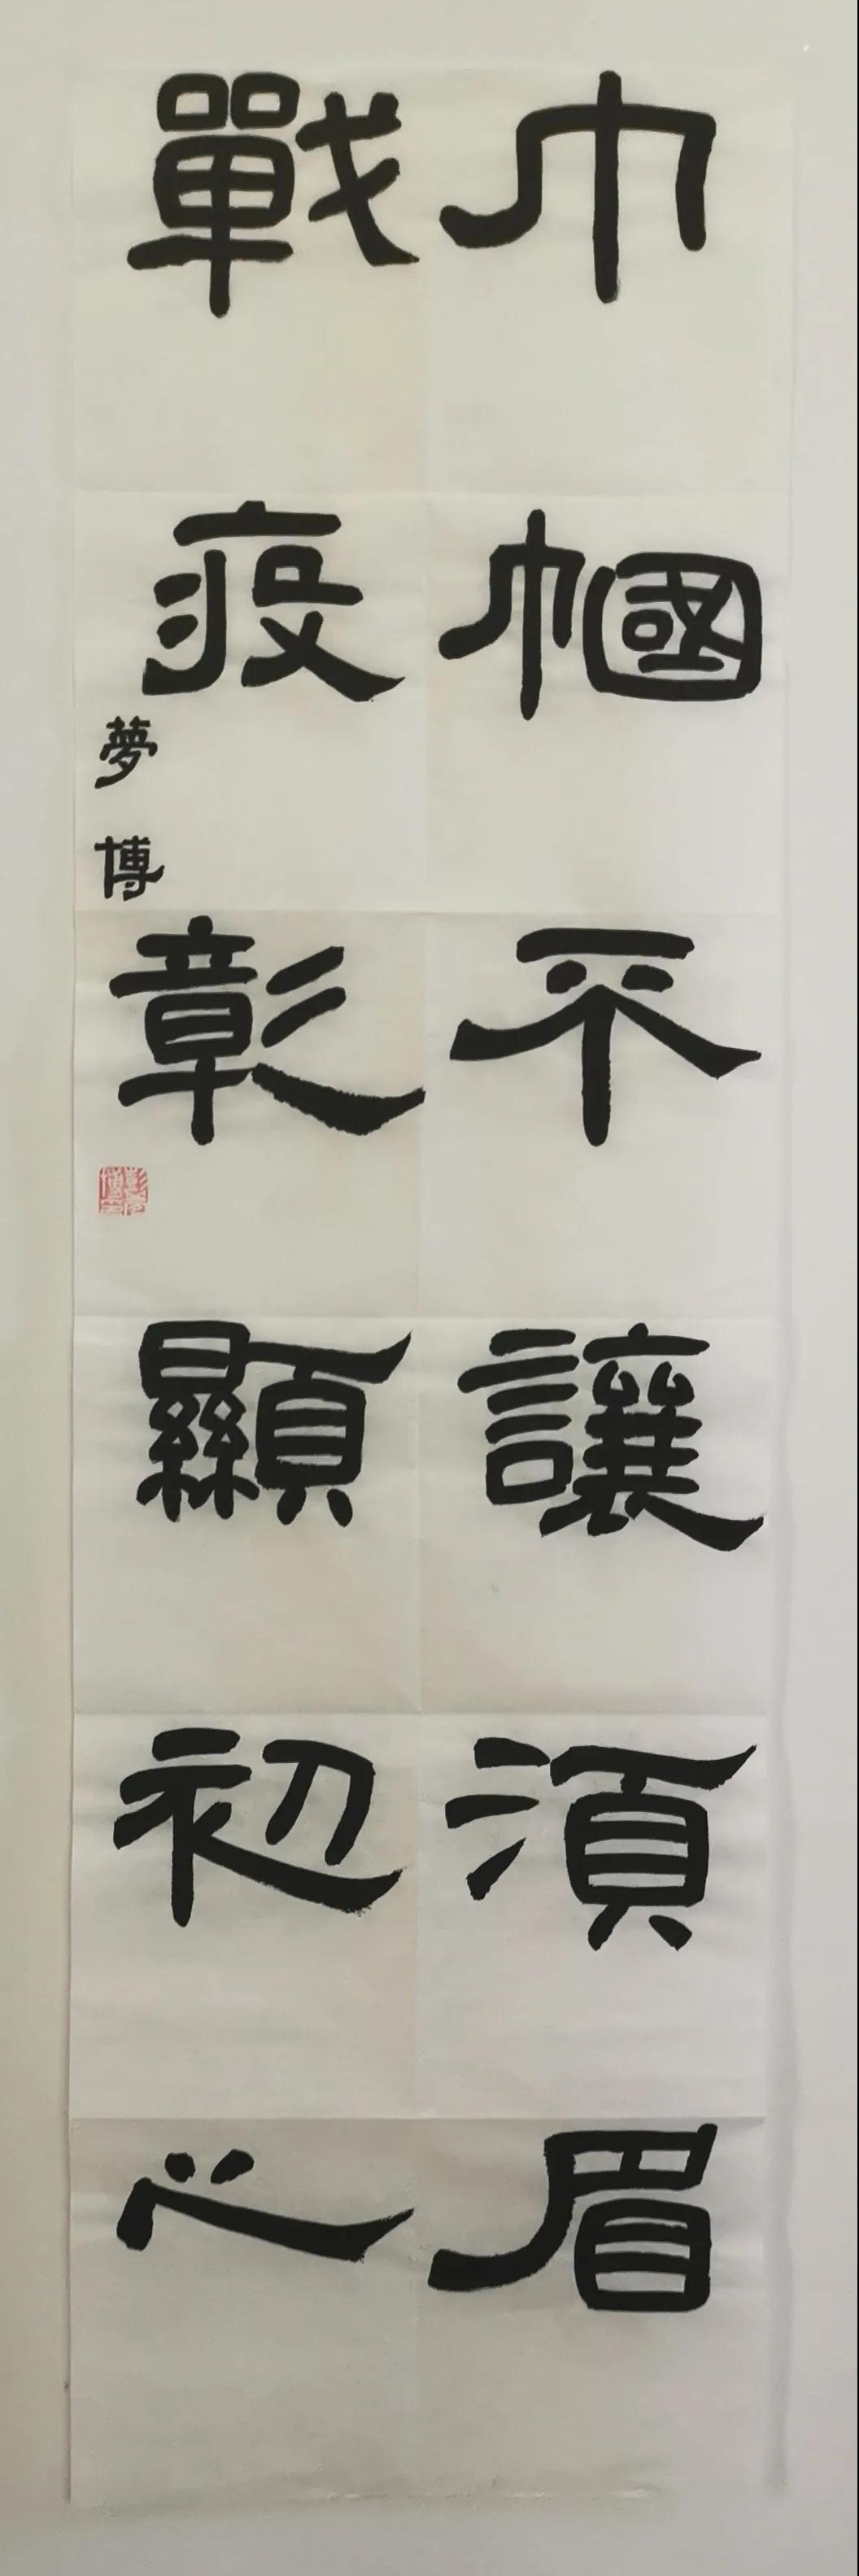 巾幗不讓須眉
戰疫彰顯初心
夢博